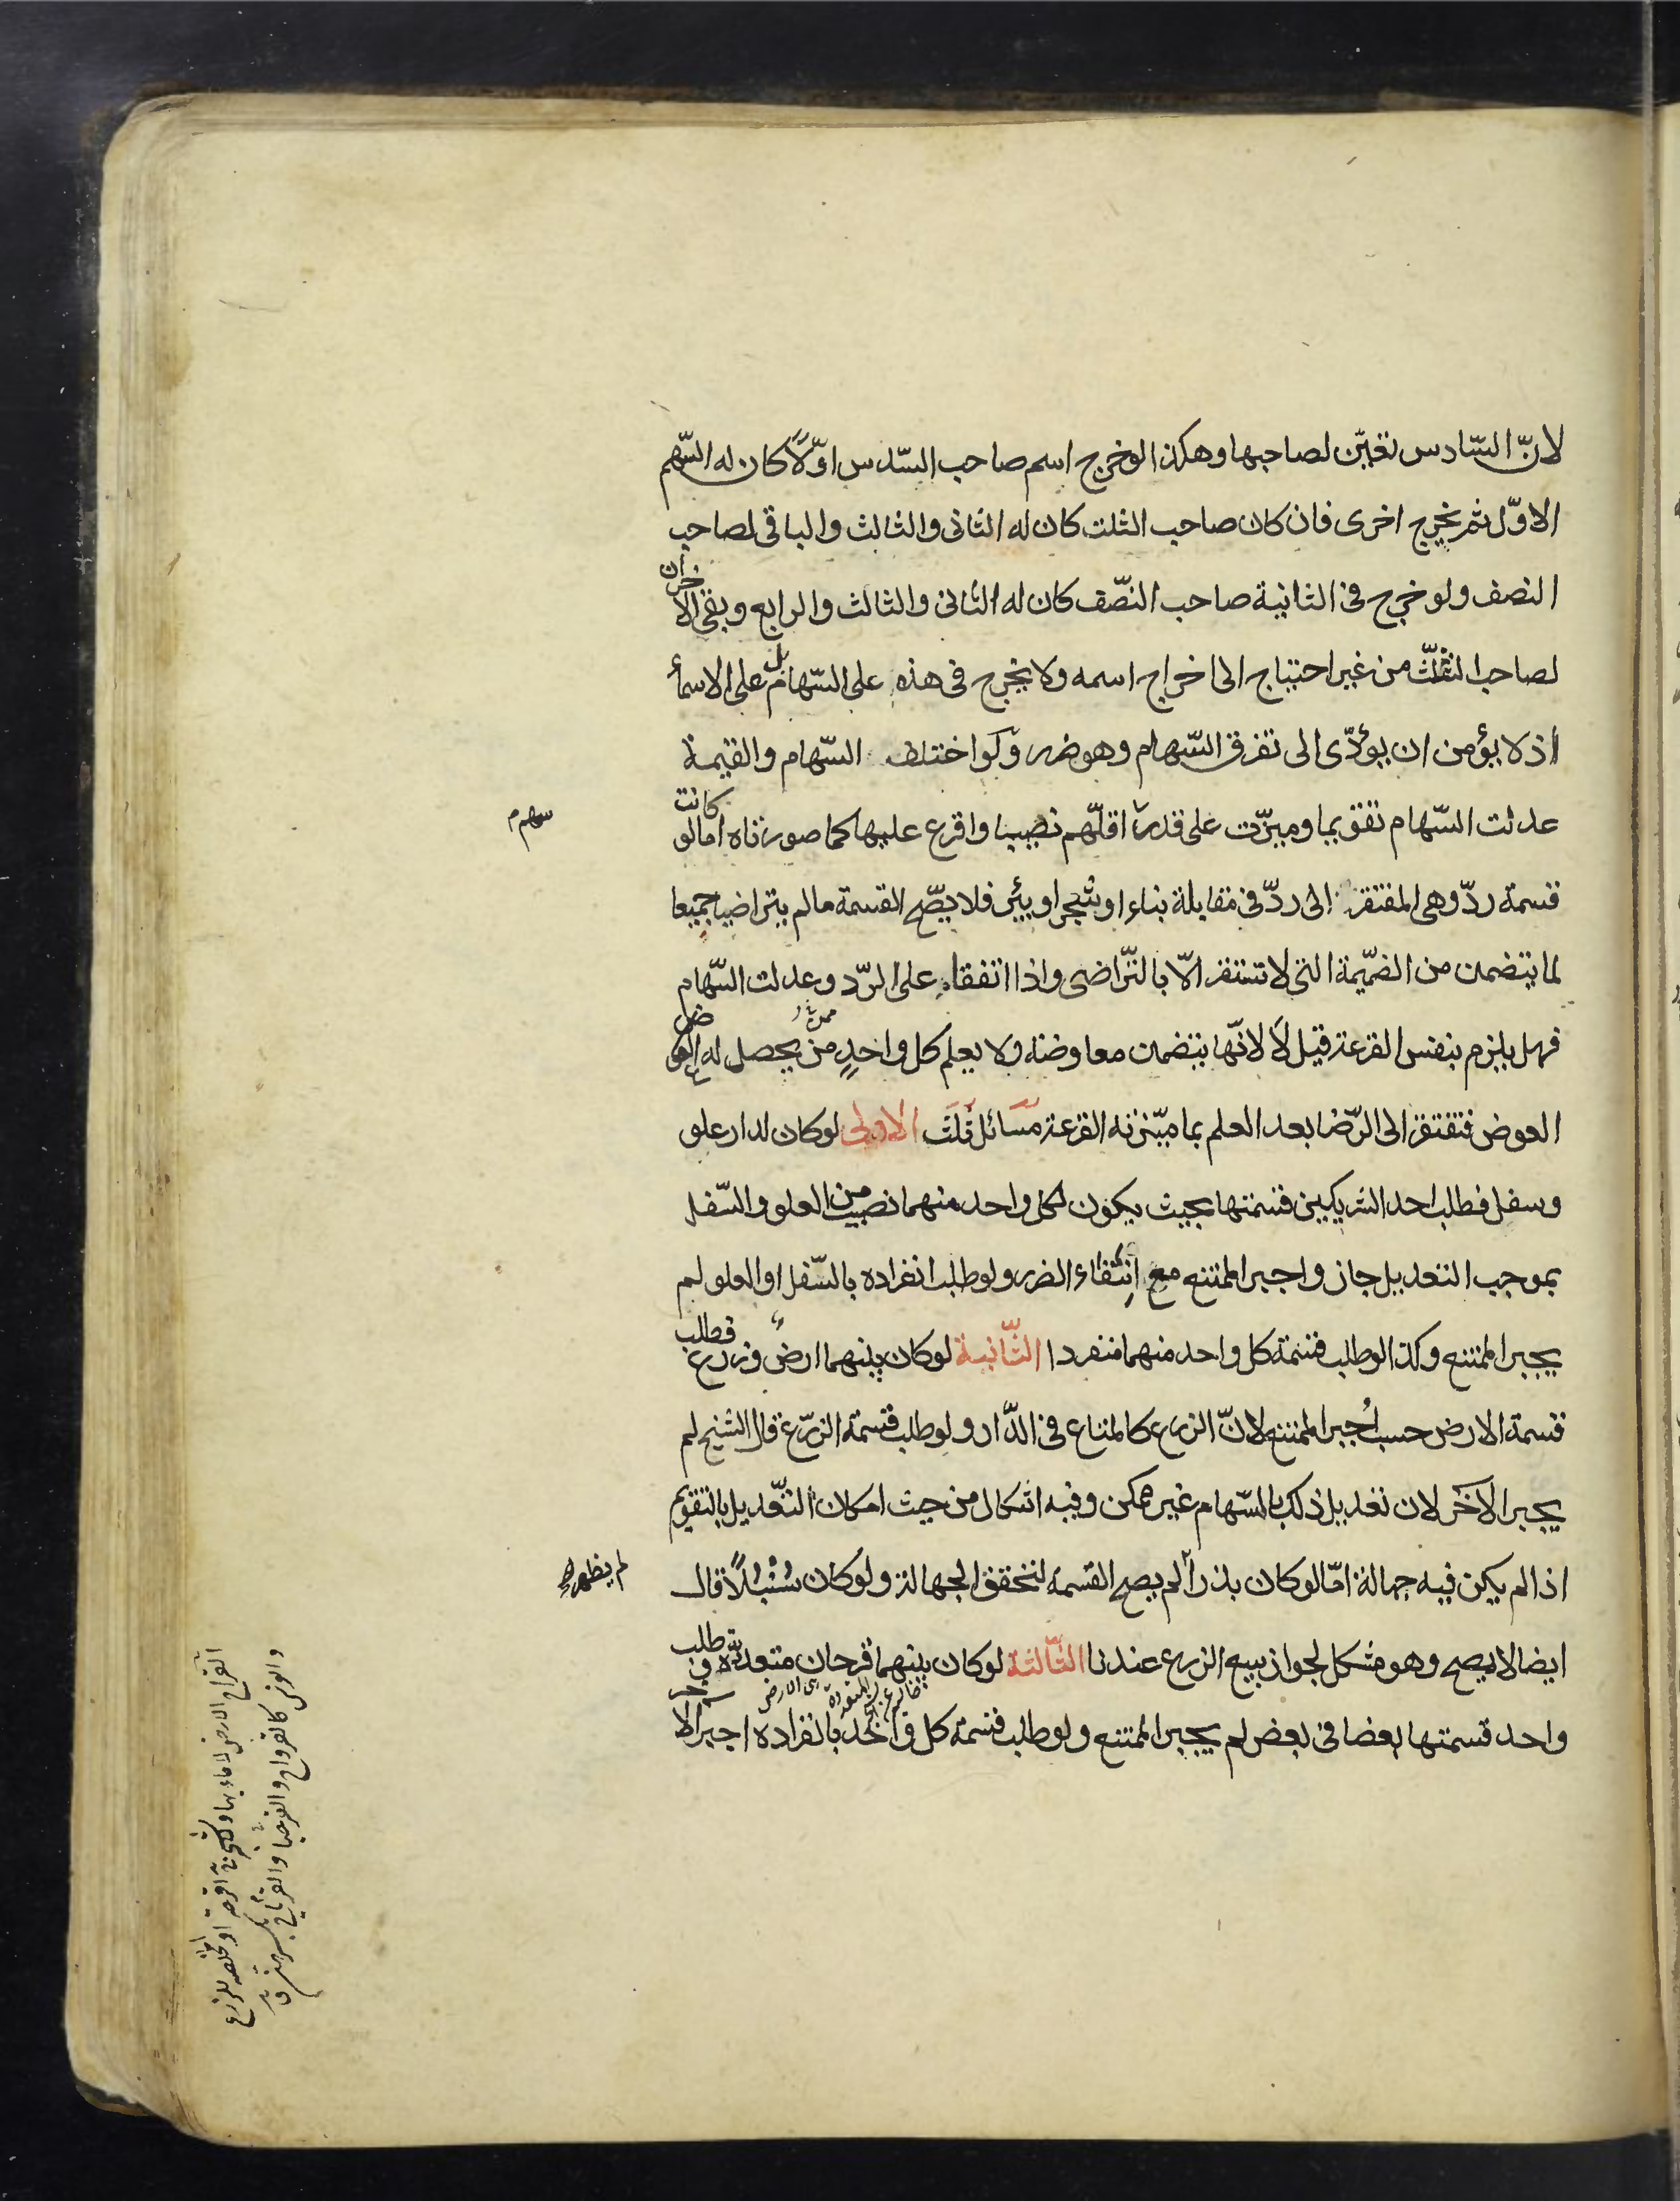 لانّ السّادس تعيّن لصاحبها وهكذا لو خرج اسم صاحب السّدس اوّلاً كان له السّهم
الاوّل ثم يخرج اخرى فان كان صاحب الثلث كان له الثانى والثالث والباقى لصاحب
النصف ولو خرج فى الثانية صاحب النصّف كان له الثانى والثالث والرابع وبقى الاخران
لصاحب الثلث من غير احتياج الى اخراج اسمه ولا يخرج فى هذه على السّهام بل على الاسماء
اذ لا يؤمن ان يؤدّى الى تفرق السّهام وهو ضرر ولو اختلف السّهام والقيمة
عدلت السّهام تقويما وميزّت على قدر اقلّهم نصيبا واقرع عليها كما صورناه اما لو كانت
سهم م
قسمة ردّ وهى المفتقرة الى ردّ فى مقابلة بناء او شجر او بئر فلا يصّح القسمة ما لم يتراضيا جميعا
لما يتضمن من الضّميمة التى لا تستقر الّا بالتّراضى واذا اتفقا على الرّد وعدلت السّهام
فهل يلزم بنفس القرعة قيل لا لانّها يتضمن معاوضة ولا يعلم كل واحدٍ من يحصل له
العوض فتفتقر الى الرّضا بعد العلم بما ميّزته القرعة مسائل ثلث الاولى لو كان لدار علو
وسفل فطلب احد الشريكين قسمتها بحيث يكون لكل واحد منهما نصيب من العلو والسّفل
بموجب التعديل جاز واجبر الممتنع مع انتفاء الضرر ولو طلب انفراده بالسّفل او العلو لم
يجبر الممتنع وكذا لو طلب قسمة كل واحد منهما منفردا الثّانية لو كان بينهما ارض وزرع فطلب
قسمة الارض حسب اُجبر الممتنع لانّ الزرع كالمتاع فى الدّار ولو طلب قسمة الزرّع قال الشيخ لم
يجبر الاخَر لان تعديل ذلك بالسّهام غير ممكن وفيه اشكال من حيث امكان التعّديل بالتقويم
اذا لم يكن فيه جهالة امّا لو كان بذراً لم يصح القسمة لتحقق الجهالة ولو كان سُنْبُلاً قال
لم يظهر
ايضا لا يصح وهو مشكل لجواز بيع الزرع عندنا الثّالثة لو كان بينهما قرحان متعددّة وطلب
واحد قسمتها بعضا فى بعض لم يجبر الممتنع ولو طلب قسمة كل واحد بانفراده اجبر
القراح الارض لا ماء بها ولا شجر اقرحة او المخلصة للزرع